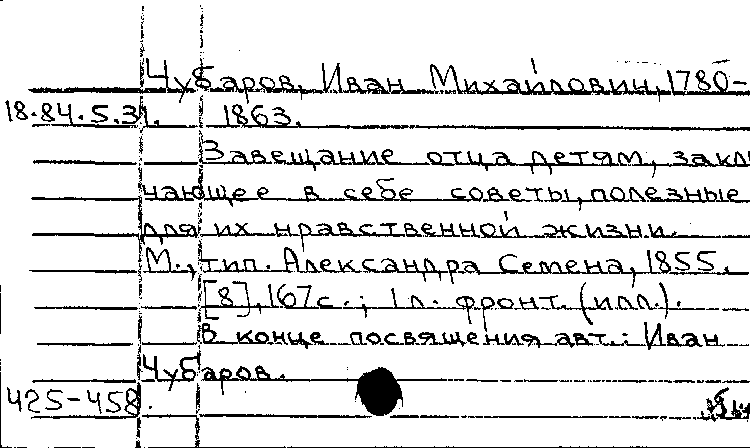 Чубаров, Иван Михайлович, 1780-
18.84.5.31. 1863.
Завещание отца детям, заклю
чающее в себе советы, полезные
для их нравственной жизни.
М., тип. Александра Семена, 1855.
[8], 167с.; 1л. фронт. (илл.).
В конце посвящения авт.: Иван
Чубаров.
425-458.